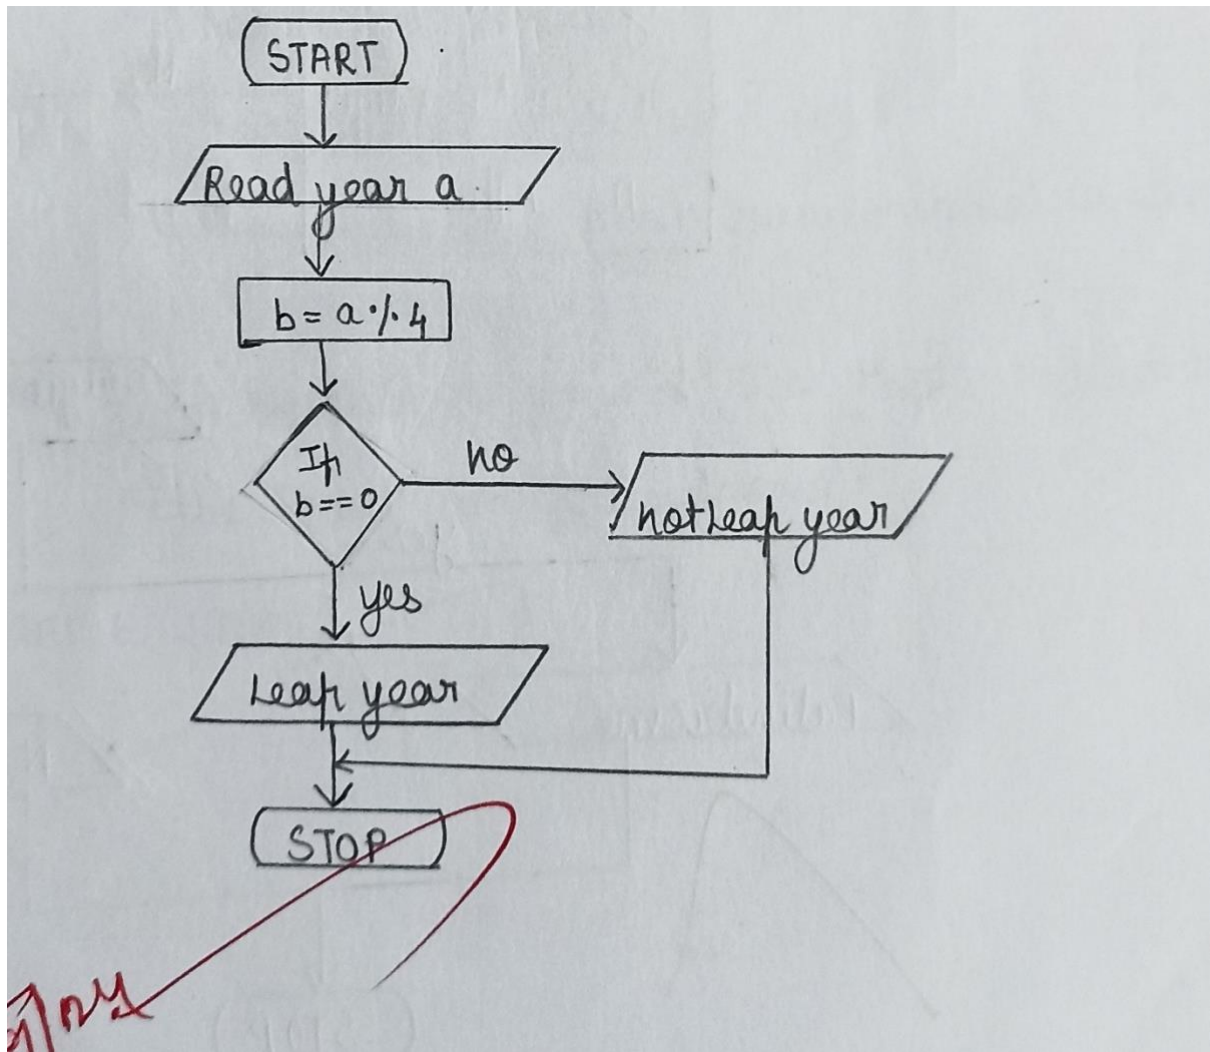 START
Read year a.
b = a % 4
If
b == 0
no
not Leap year
yes
Leap year
STOP